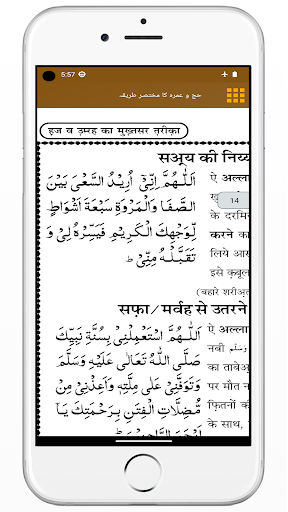 5:57
حج و عمرہ کا مختصر طریقہ
हज व उ़मरह का मुख़्तसर त़रीक़ा
सअ़्य की निय्य
اَللّٰهُمَّ اِنِّىْۤ اُرِيْدُ السَّعْىَ بَيْنَ
الصَّفَا وَالْمَرْوَةِ سَبْعَةَ اَشْوَاطٍ
لِّوَجْهِكَ الْكَرِيْمِ فَيَسِّرْهُ لِىْ وَ
تَقَبَّلْهُ مِنِّىْ ط
ऐ अल्ला
14
के दरमि
करने का
लिये आस
इसे क़बूल
(बहारे शरीअ़त
सफ़ा/ मर्वह से उतरने
اَللّٰهُمَّ اسْتَعْمِلْنِىْ بِسُنَّةِ نَبِيِّكَ
صَلَّى اللّٰهُ تَعَالٰى عَلَيْهِ وَسَلَّمَ
وَتَوَفَّنِىْ عَلٰى مِلَّتِهٖ وَاَعِذْنِىْ مِنْ
مُّضِلَّاتِ الْفِتَنِ بِرَحْمَتِكَ يَاۤ
اَرْحَمَ الرَّاحِمِيْنَ ط
ऐ अल्ला
नबी وسلم
का ताबेअ़
पर मौत न
फ़ितनों क
के साथ,